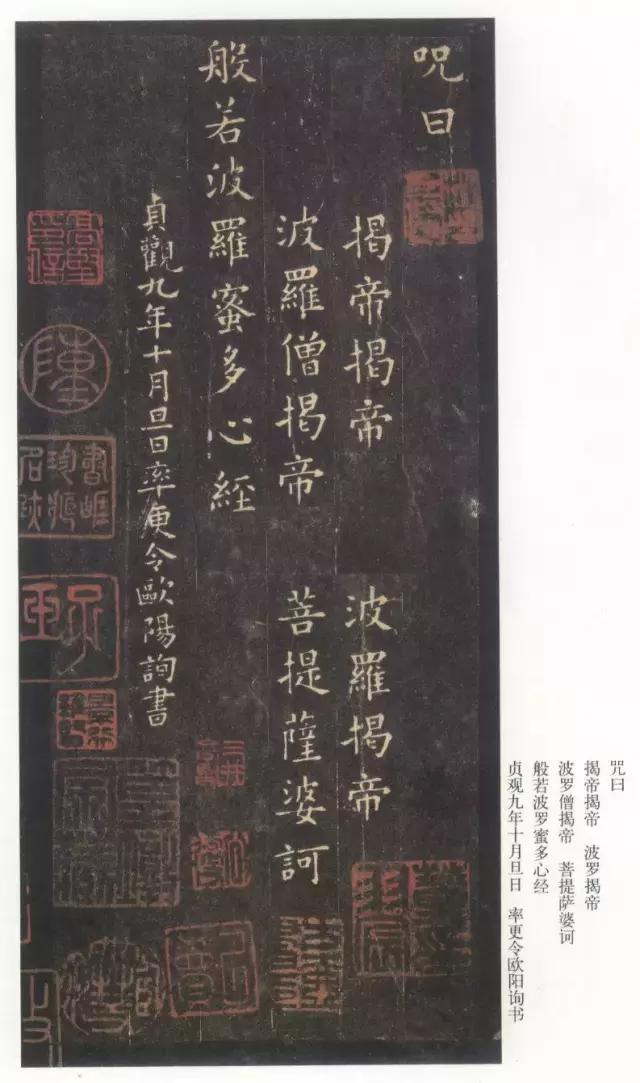 呪曰
揭帝揭帝 波羅揭帝
波羅僧揭帝 菩提薩婆訶
般若波羅蜜多心經
貞觀九年十月旦日率更令歐陽詢書
咒曰
揭帝揭帝 波罗揭帝
波罗僧揭帝 菩提萨婆诃
般若波罗蜜多心经
贞观九年十月旦日 率更令欧阳询书